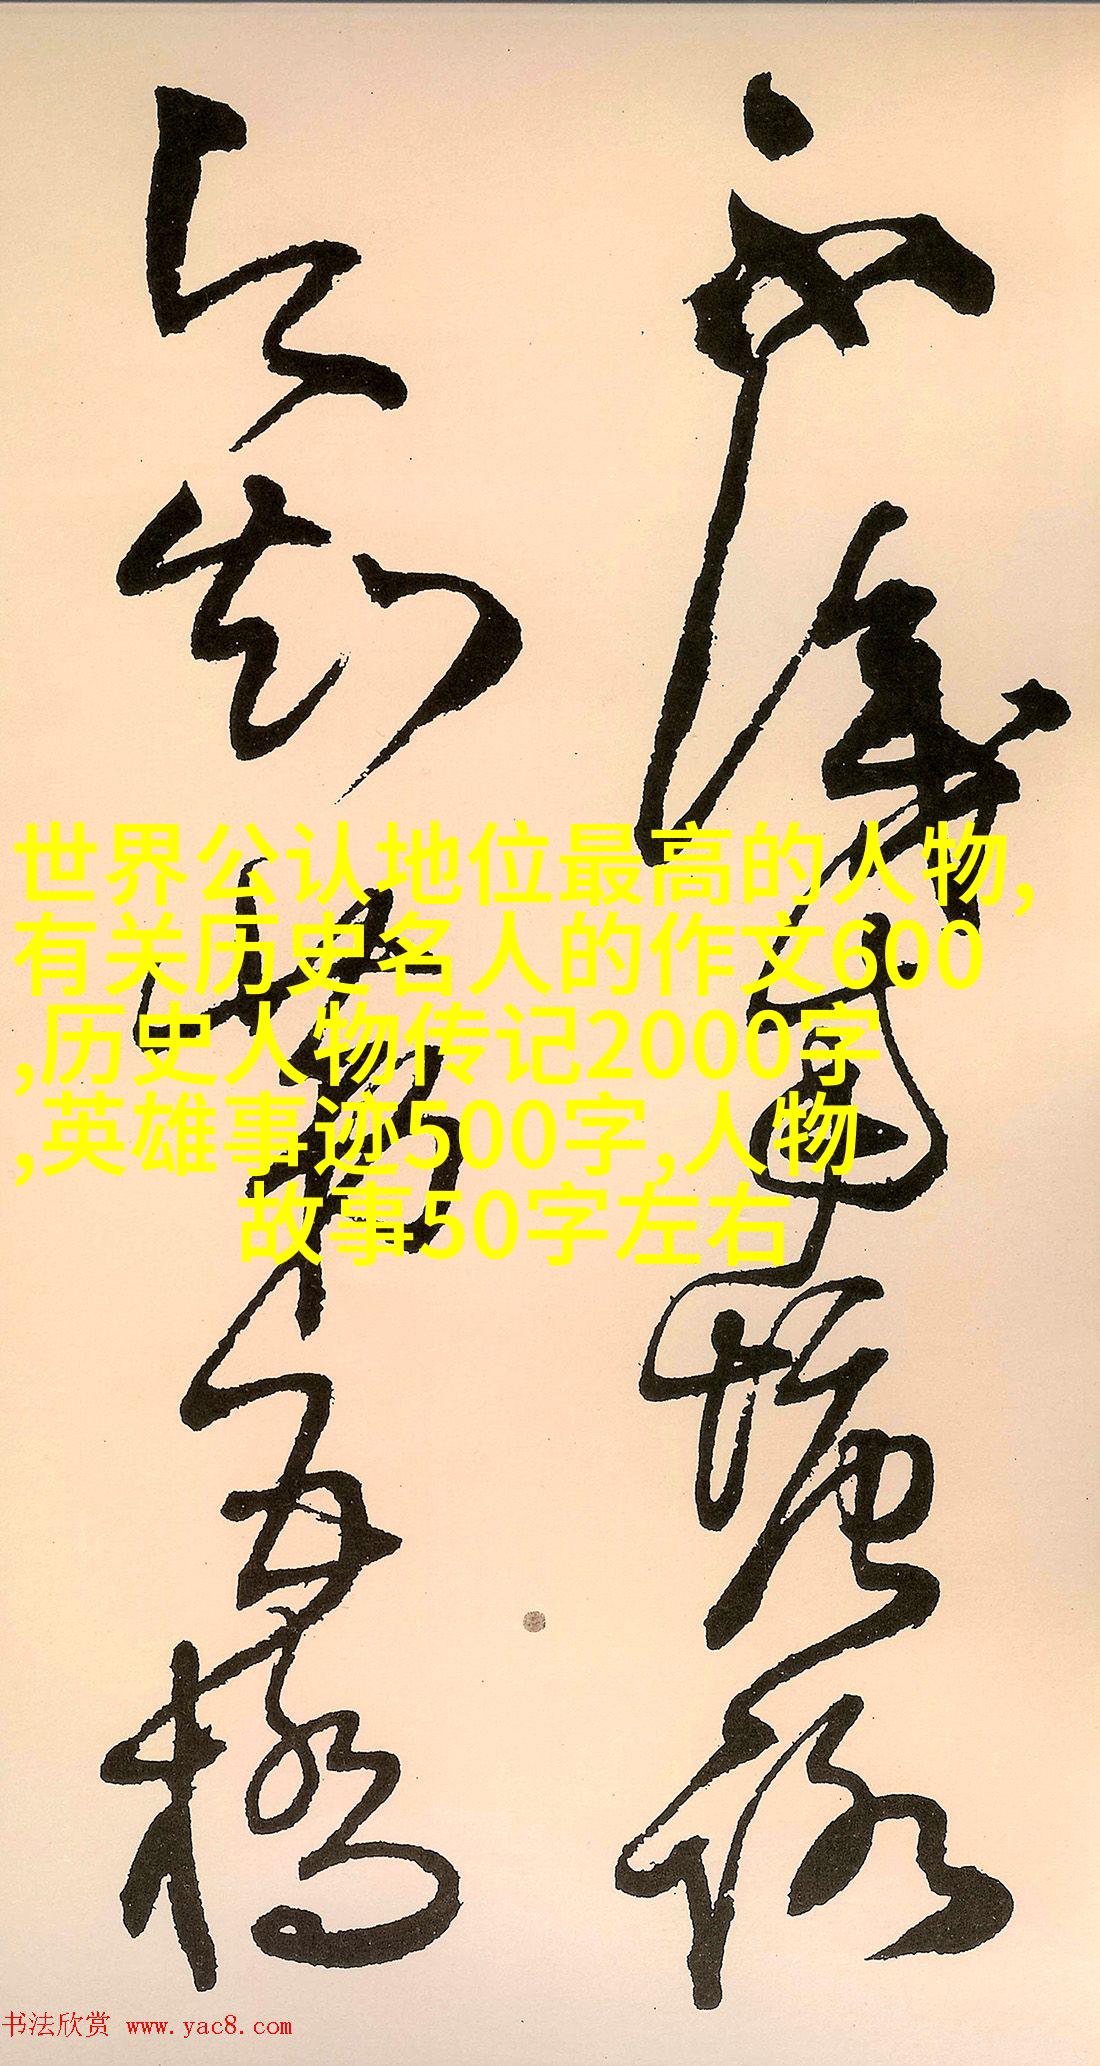 不識南塘路
今知第五橋
世界公认地位最高的人物,
有关历史名人的作文600
,历史人物传记2000字
,英雄事迹500字,人物
故事50字左右
书法欣赏 www.yac8.com